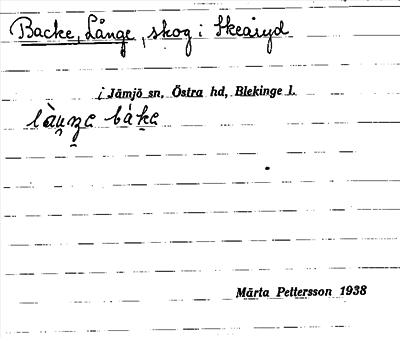 Backe, Långe, skog i Skeäryd
i Jämjö sn, Östra hd, Blekinge l.
Märta Pettersson 1938